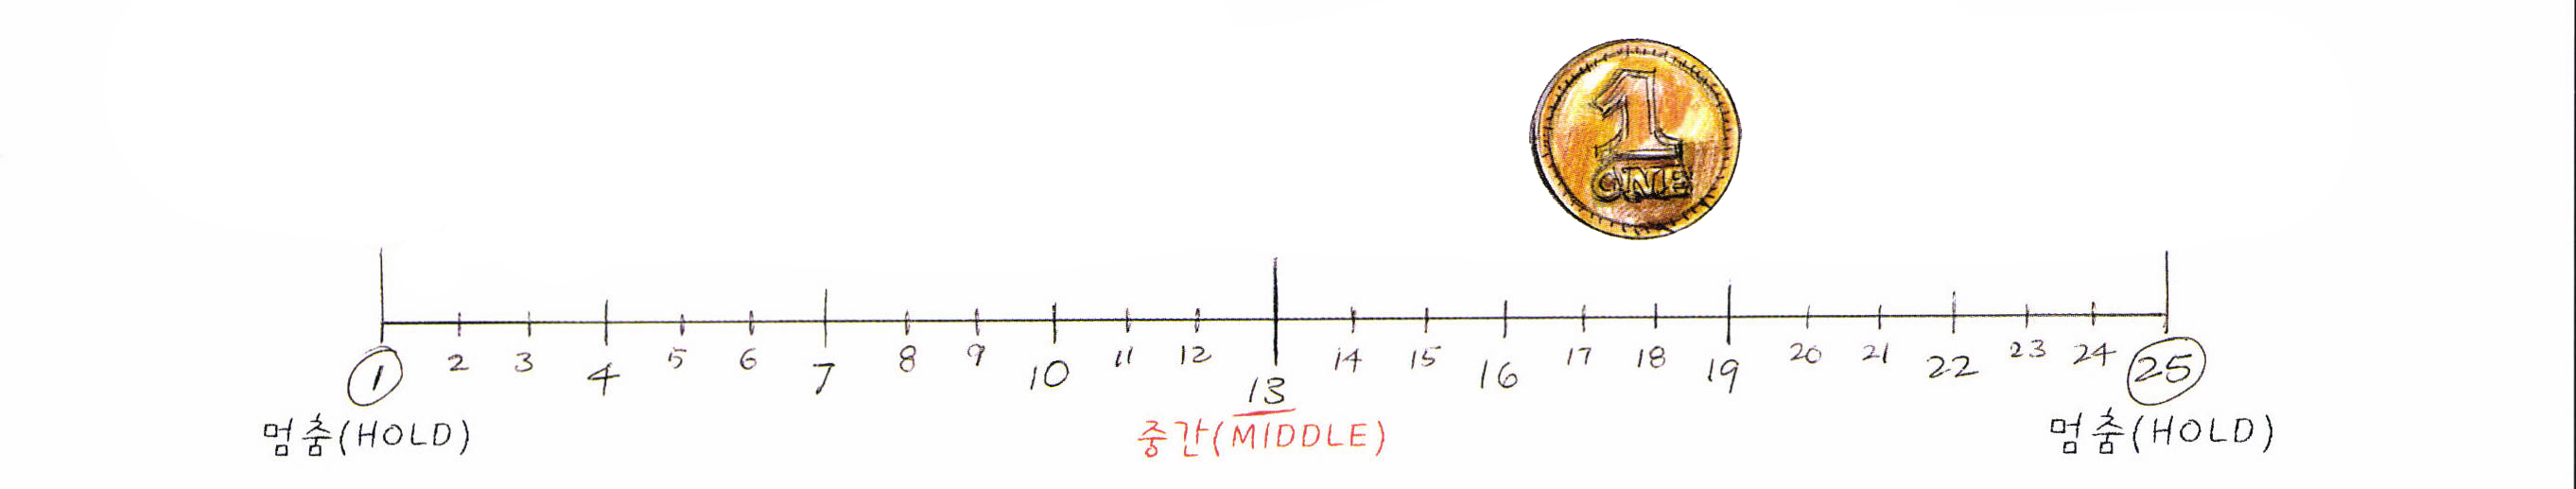 1
ONE
1 2 3 4 5 6 7 8 9 10 11 12 13 14 15 16 17 18 19 20 21 22 23 24 25
멈춤(HOLD) 중간(MIDDLE) 멈춤(HOLD)